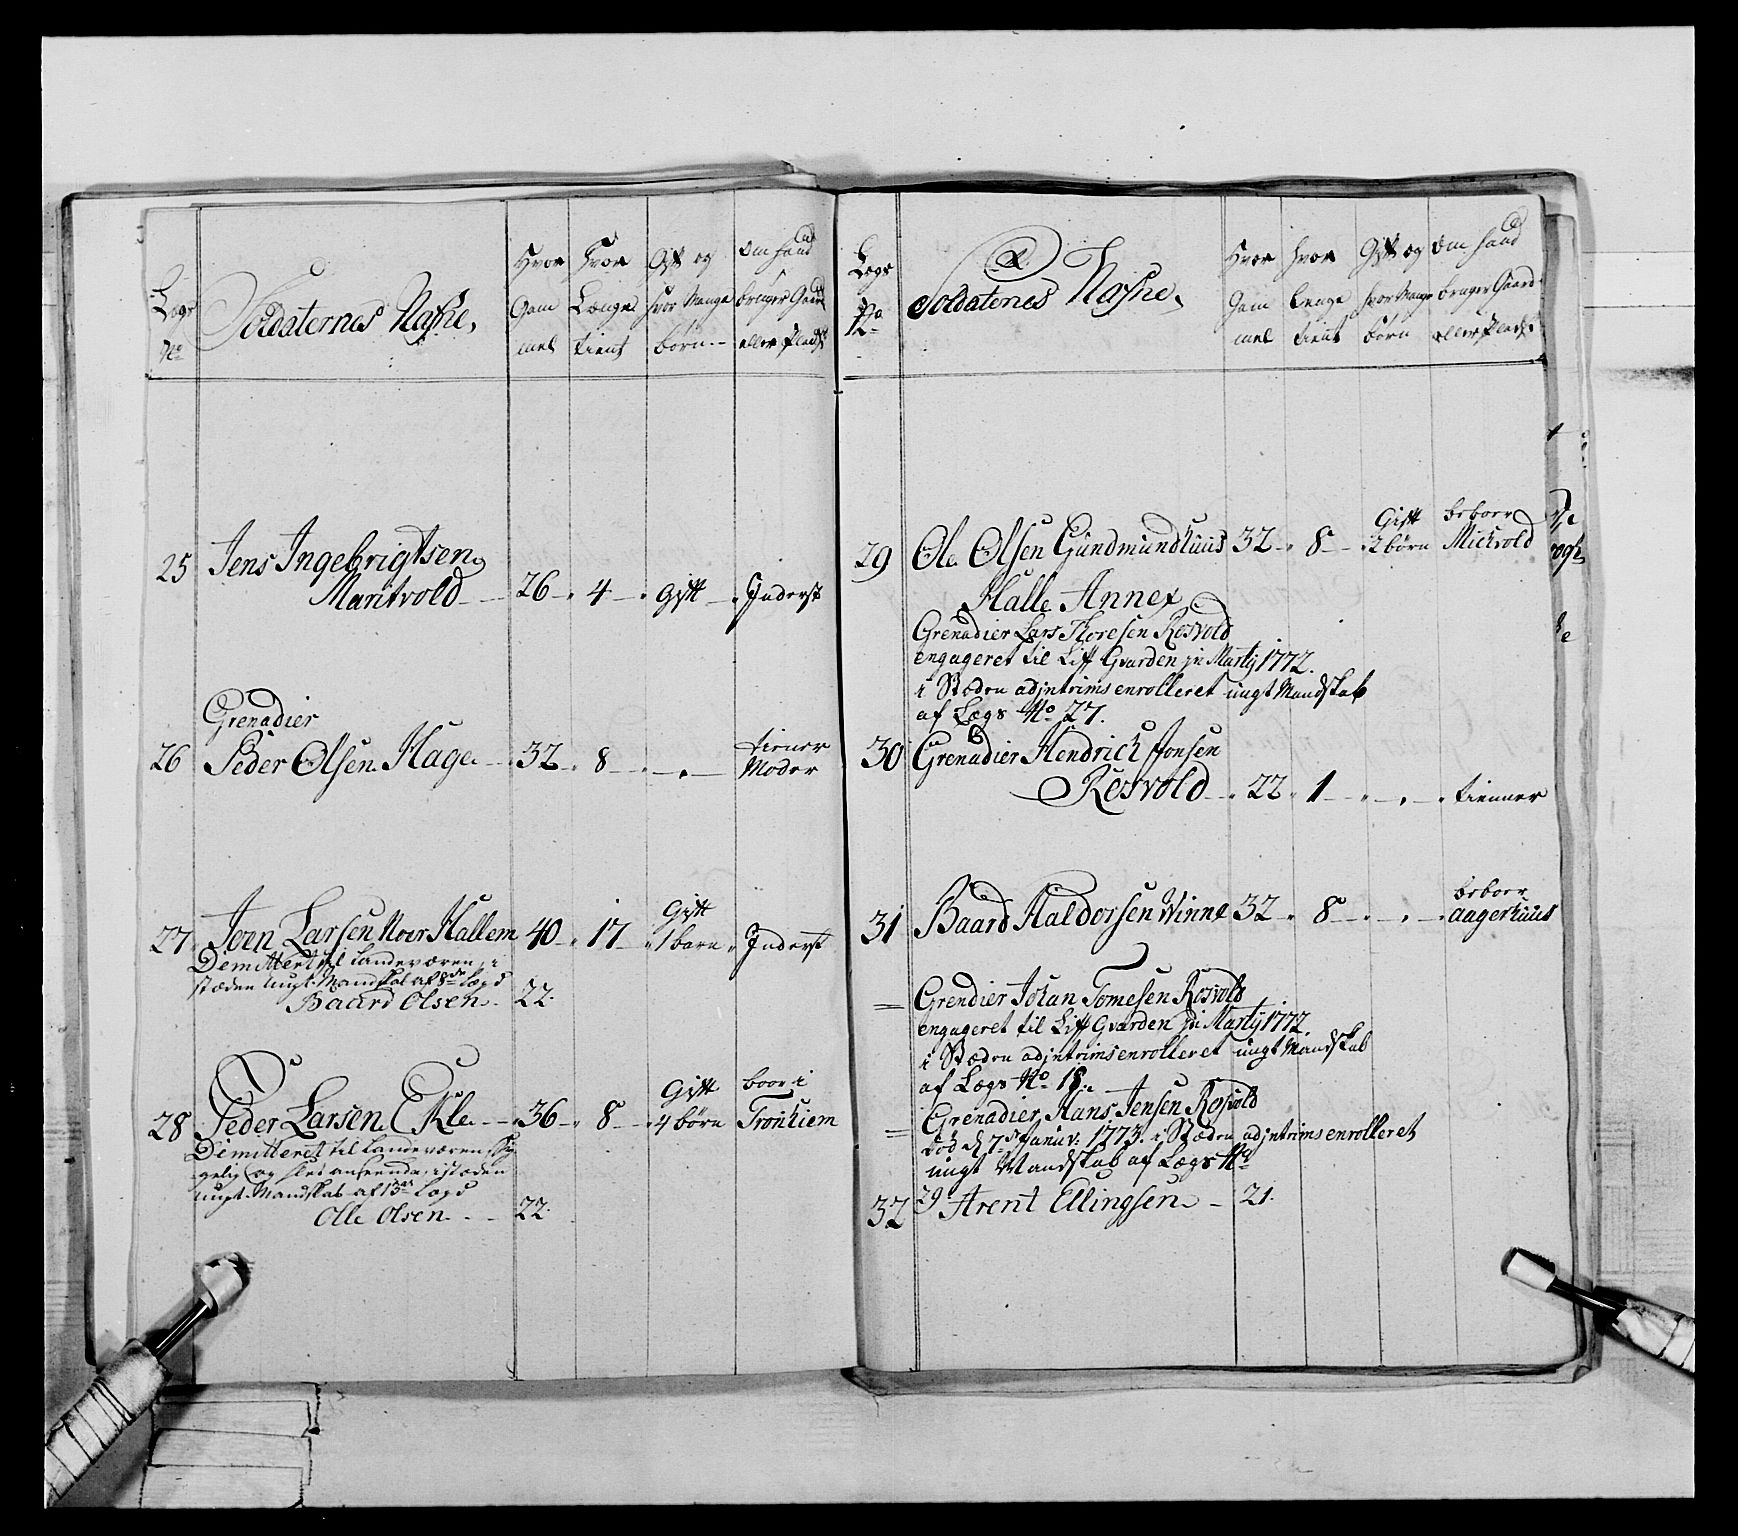 Legs No
Soldaternes Nafne,
Hvor Gammel
Hvor Længe tient
Gift og hvor Mange børn
Om hand bruger Gaard eller Pladtz
25 Jens Ingebrigtsen
Maritvold 26 4 Gift Inderst
Grenadier
26 Peder Olsen Hage 32 8 tiener Moder
27 Joen Larsen Noer Hallem 40 17 Gift 1 barn Inderst
Demittert til Landeværen, i
stæden ungt Mandskab af 8de Lægd
Baard Olsen 22.
28 Peder Larsen Ekle 36 8 Gift 4 børn boer i Tronhiem
Demitteret til Landeværen,
og i stæden
ungt Mandskab af 13de Lægd
Olle Olsen 22.
Legs No
Soldatenes Nafne,
Hvor Gammel
Hvor Lenge tient
Gift og hvor Mange børn
Om hand bruger Gaard eller Pladst
29 Ole Olsen Gundmundhuus 32 8 Gift 2 børn beboer Mickvold
Halle Annex
Grenadier Lars Thoresen Rosvold
engageret til Liff Gvarden in Martÿ 1772.
i Stæden adjntrims enrolleret ungt Mandskab
af Lægs No 27.
30 Grenadier Hendrich Jonsen
Rosvold 22 1 tienner
31 Baard Haldorsen Winne 32 8 beboer aagerhuus
Grendier Johan Tomesen Rosvold
engageret til Liff Gvarden in Martÿ 1772.
i Stæden adjntrims enrolleret ungt Mandskab
af Lægs No 18.
Grenadier Hans Jensen Rosvold
død d 7de Januv: 1773. i Stæden adjntrims enrolleret
ungt Mandskab af Lægs No
32 29 Arent Ellingsen 21.